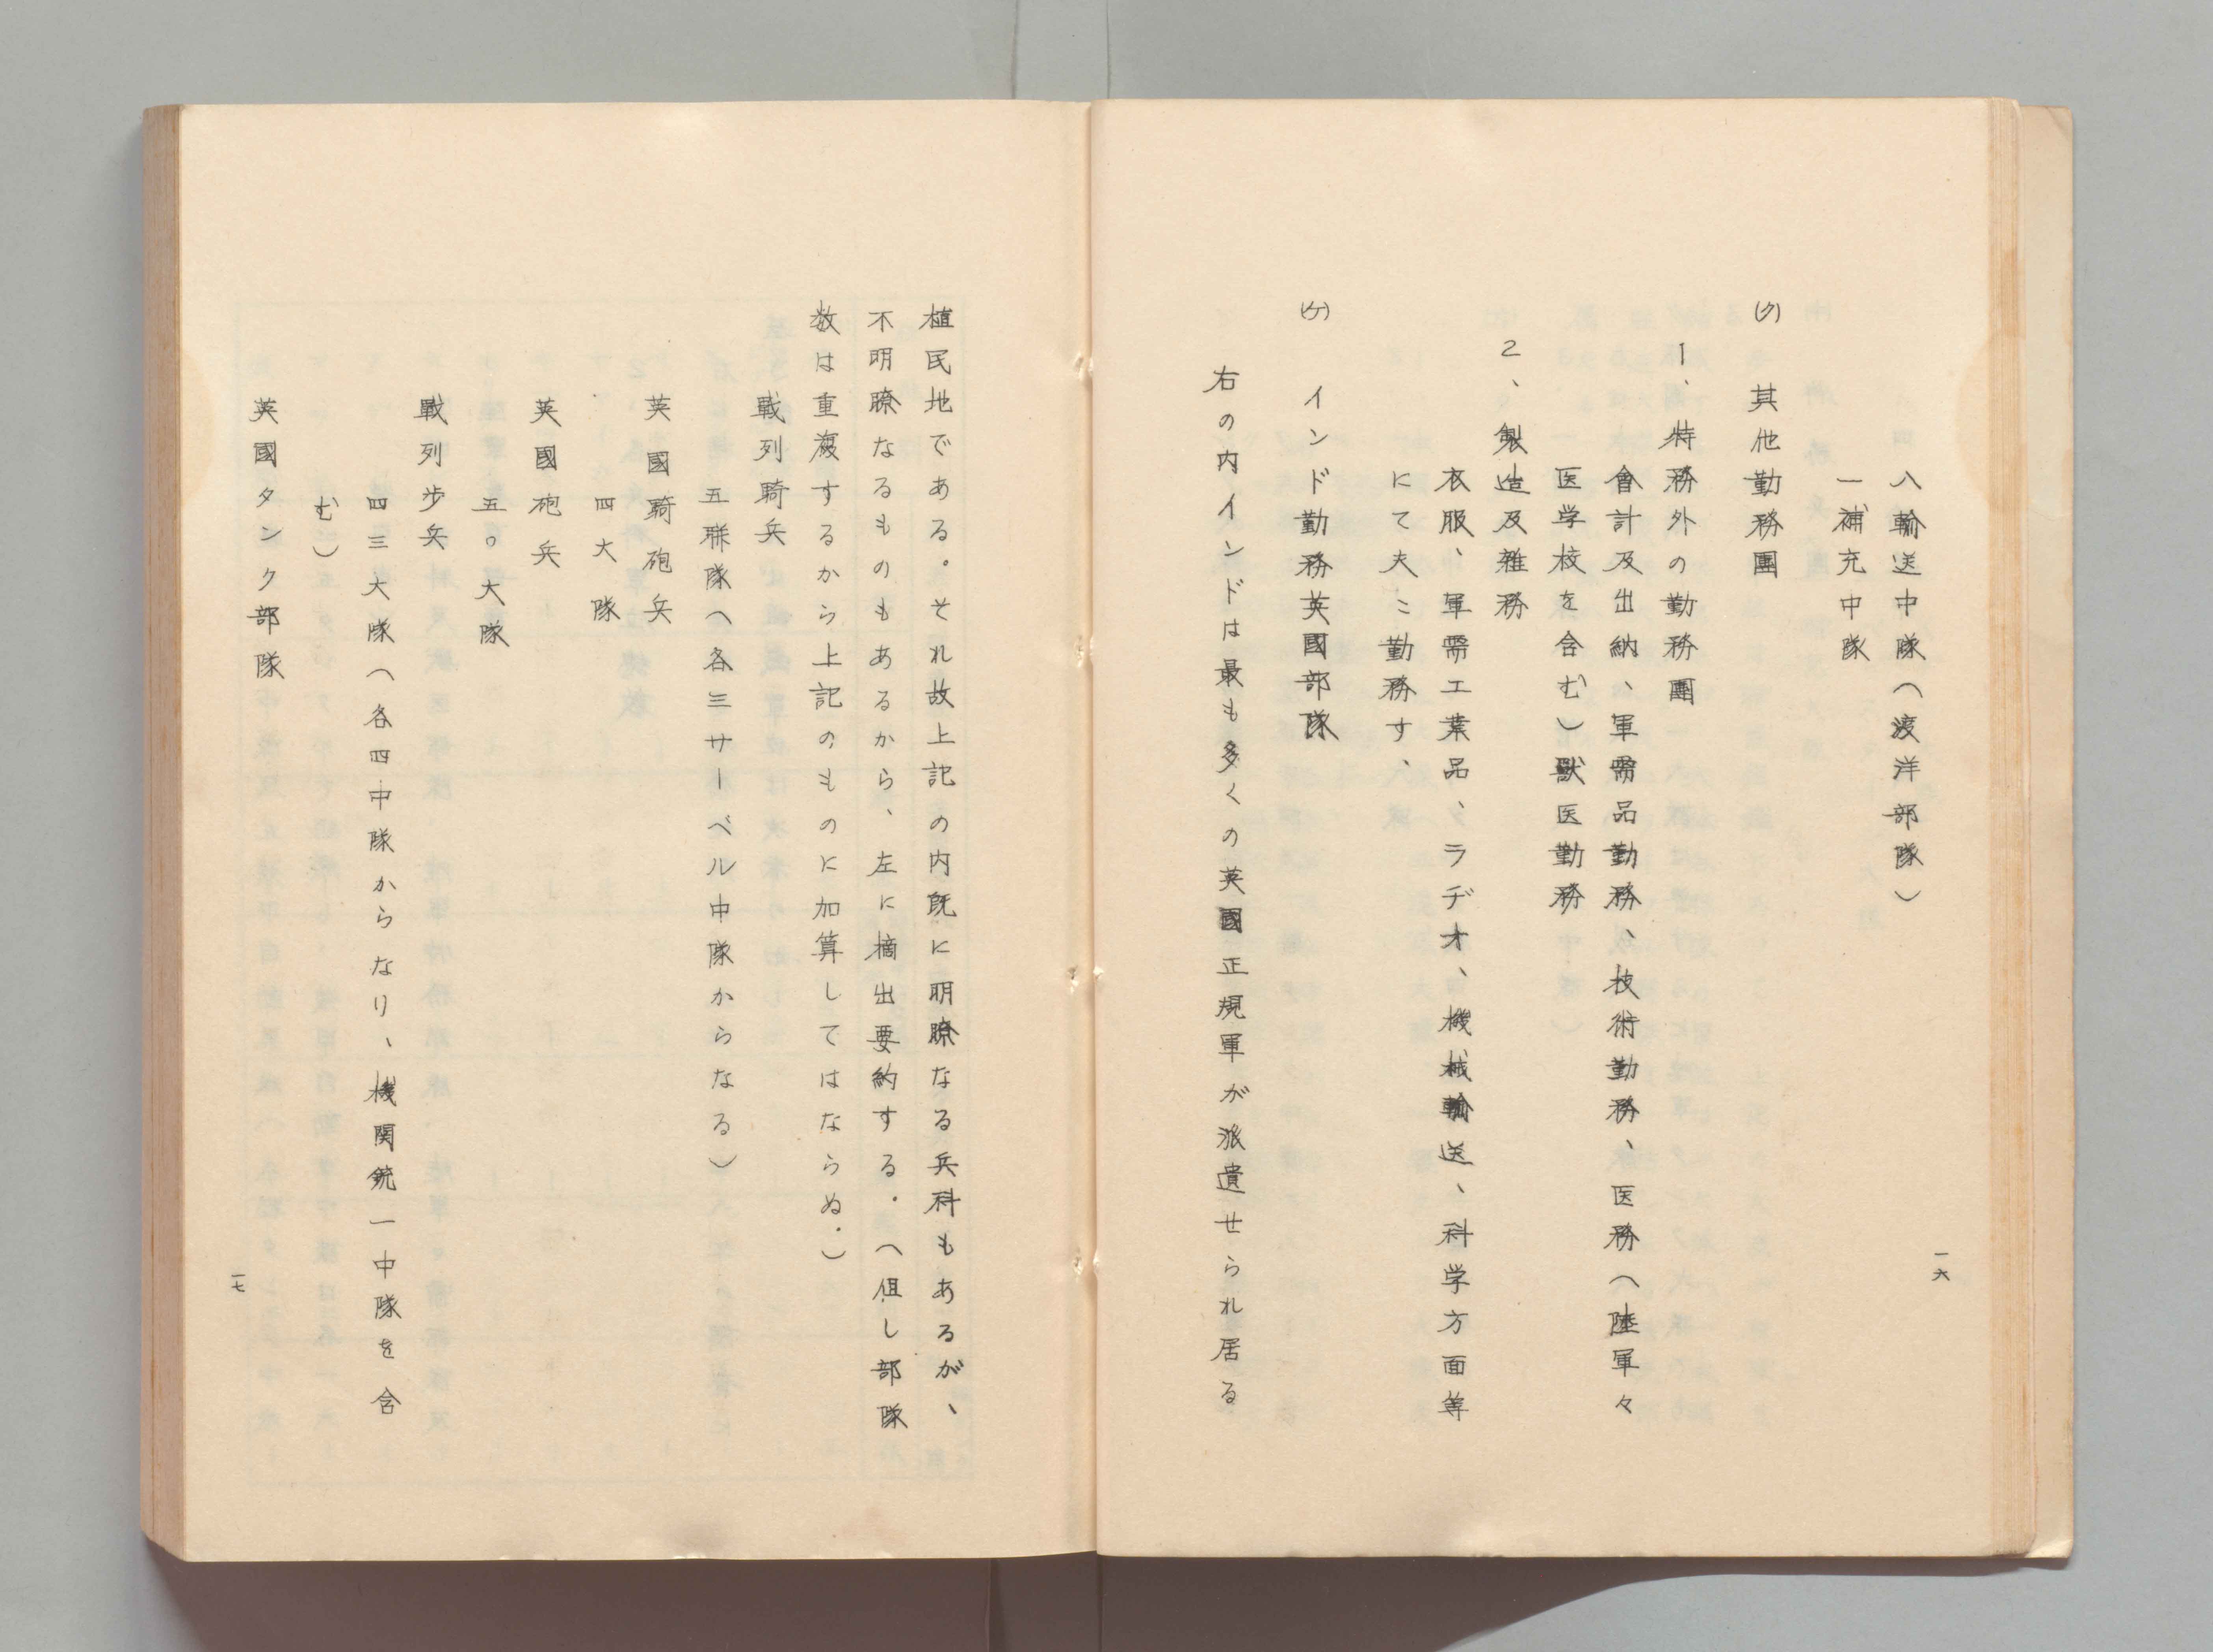 八輸送中隊(渡洋部隊)
一補充中隊
(ク) 其他勤務團
1、特務外の勤務團
會計及出納、軍需品勤務、技術勤務、医務(陸軍々
医学校を含む)獣医勤務
2、製造及雑務
衣服、軍需工業品、ラヂオ、機械輸送、科学方面等
にて夫々勤務す、
(ケ) インド勤務英國部隊
右の内インドは最も多くの英國正規軍が派遣せられ居る
一六
植民地である。それ故上記の内既に明瞭なる兵科もあるが、
不明瞭なるものもあるから、左に摘出要約する。(但し部隊
数は重複するから上記のものに加算してはならぬ。)
戰列騎兵
五聯隊(各三サーベル中隊からなる)
英國騎砲兵
四大隊
英國砲兵
五〇大隊
戰列歩兵
四三大隊(各四中隊からなり、機関銃一中隊を含
む)
英國タンク部隊
一七